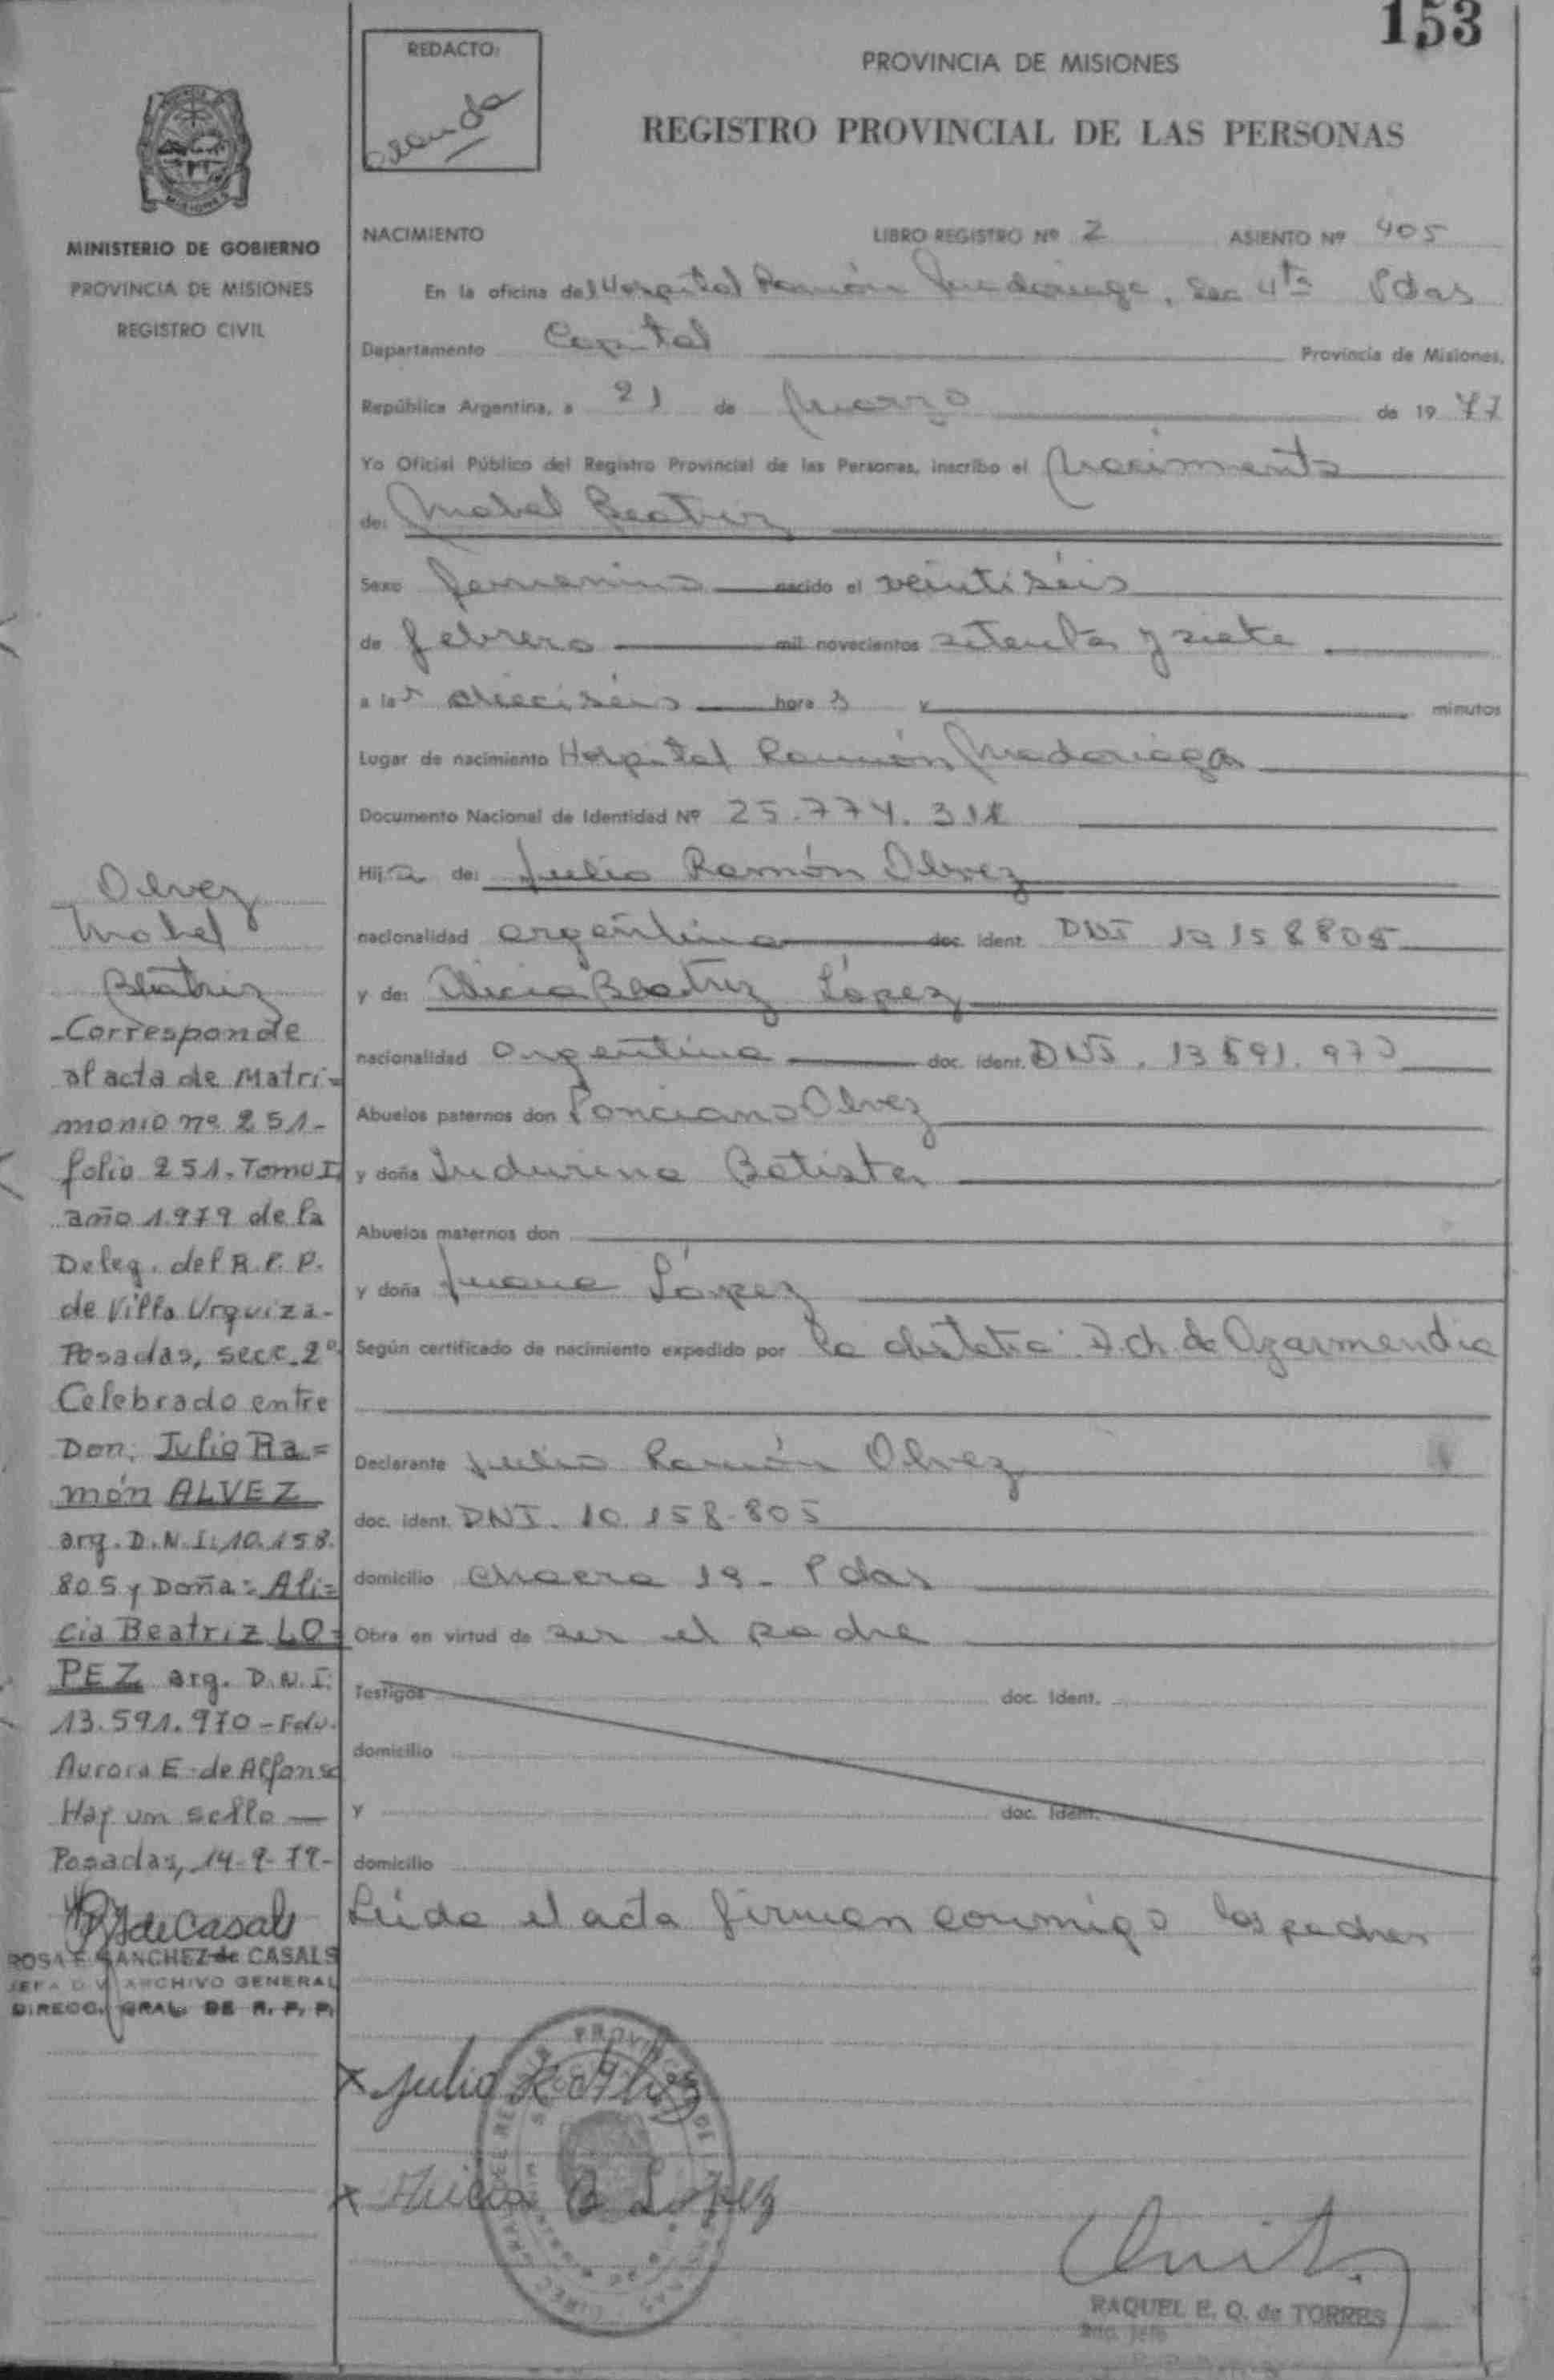 153
REDACTO:
PROVINCIA DE MISIONES
REGISTRO PROVINCIAL DE LAS PERSONAS
MINISTERIO DE GOBIERNO
PROVINCIA DE MISIONES
REGISTRO CIVIL
NACIMIENTO LIBRO REGISTRO Nº 2 ASIENTO Nº 405
En la oficina del Hospital Ramón Madariaga, Sec 4ta Pdas
Departamento Capital Provincia de Misiones,
República Argentina, a 21 de Marzo de 1977
Yo Oficial Público del Registro Provincial de las Personas, inscribo el Nacimiento
de: Mabel Beatriz
Sexo femenino nacido el veintiséis
de febrero mil novecientos setenta y siete
a las dieciséis horas y minutos
Lugar de nacimiento Hospital Ramón Madariaga
Documento Nacional de Identidad Nº 25.774.311
Hija de: Julio Ramón Alvez
nacionalidad argentina doc. ident. DNI 10158805
y de: Alicia Beatriz López
nacionalidad argentina doc. ident. DNI. 13591.970
Abuelos paternos don Ponciano Alvez
y doña Indurina Batista
Abuelos maternos don
y doña Juana López
Según certificado de nacimiento expedido por la obstetra D. Ch. de Ozarmendia
Declarante Julio Ramón Alvez
doc. ident. DNI. 10.158.805
domicilio Chacra 19 - Pdas
Obra en virtud de ser el padre
Testigos doc. ident.
domicilio
y doc. ident.
domicilio
Leída el acta firman conmigo los padres
x Julio R Alvez
x Alicia B López
RAQUEL E. Q. de TORRES
Alvez
Mabel
Beatriz
-Corresponde
al acta de Matri=
monio nº 251-
folio 251. Tomo I
año 1.979 de la
Deleg. del R.P.P.
de Villa Urquiza-
Posadas, secc. 2º
Celebrado entre
Don: Julio Ra=
món ALVEZ
arg. D.N.I: 10.158.
805 y Doña: Ali=
cia Beatriz LO=
PEZ arg. D.N.I.
13.591.970 - Fdo.
Aurora E. de Alfonso
Hay un sello —
Posadas, 14-9-79-
de Casals
ROSA E. SANCHEZ de CASALS
JEFA DIV ARCHIVO GENERAL
DIRECC. GRAL. DE R. P. P.